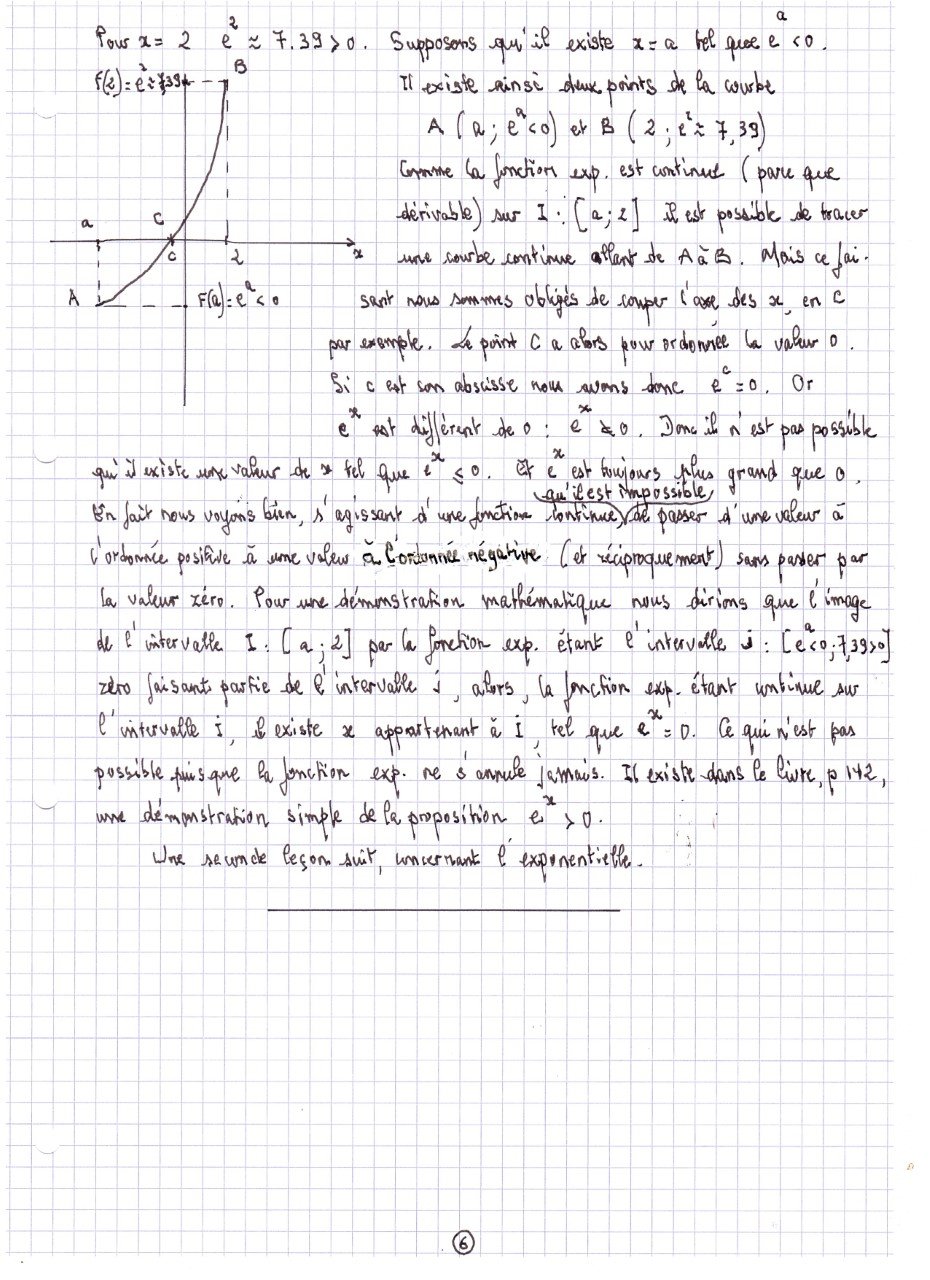 Pour x = 2 e² ≈ 7.39 > 0. Supposons qu'il existe x = a tel que eᵃ < 0.
F(2) = e² ≈ 7,39
B
Il existe ainsi deux points de la courbe
A (a ; eᵃ < 0) et B (2 ; e² ≈ 7,39)
Comme la fonction exp. est continue (parce que
dérivable) sur I : [a ; 2] il est possible de tracer
a C c 2 x
une courbe continue allant de A à B. Mais ce fai-
A F(a) = eᵃ < 0
sant nous sommes obligés de couper l'axe des x, en C
par exemple. Le point C a alors pour ordonnée la valeur 0.
Si c est son abscisse nous avons donc eᶜ = 0. Or
eˣ est différent de 0 : eˣ ≠ 0. Donc il n'est pas possible
qu'il existe une valeur de x tel que eˣ ≤ 0. Et eˣ est toujours plus grand que 0.
qu'il est impossible
En fait nous voyons bien, s'agissant d'une fonction continue, de passer d'une valeur à
l'ordonnée positive à une valeur à l'ordonnée négative (et réciproquement) sans passer par
la valeur zéro. Pour une démonstration mathématique nous dirions que l'image
de l'intervalle I : [a ; 2] par la fonction exp. étant l'intervalle j : [eᵃ<0 ; 7,39>0]
zéro faisant partie de l'intervalle j, alors, la fonction exp. étant continue sur
l'intervalle i, il existe x appartenant à I, tel que eˣ = 0. Ce qui n'est pas
possible puisque la fonction exp. ne s'annule jamais. Il existe dans le livre, p 142,
une démonstration simple de la proposition eˣ > 0.
Une seconde leçon suit, concernant l'exponentielle.
6